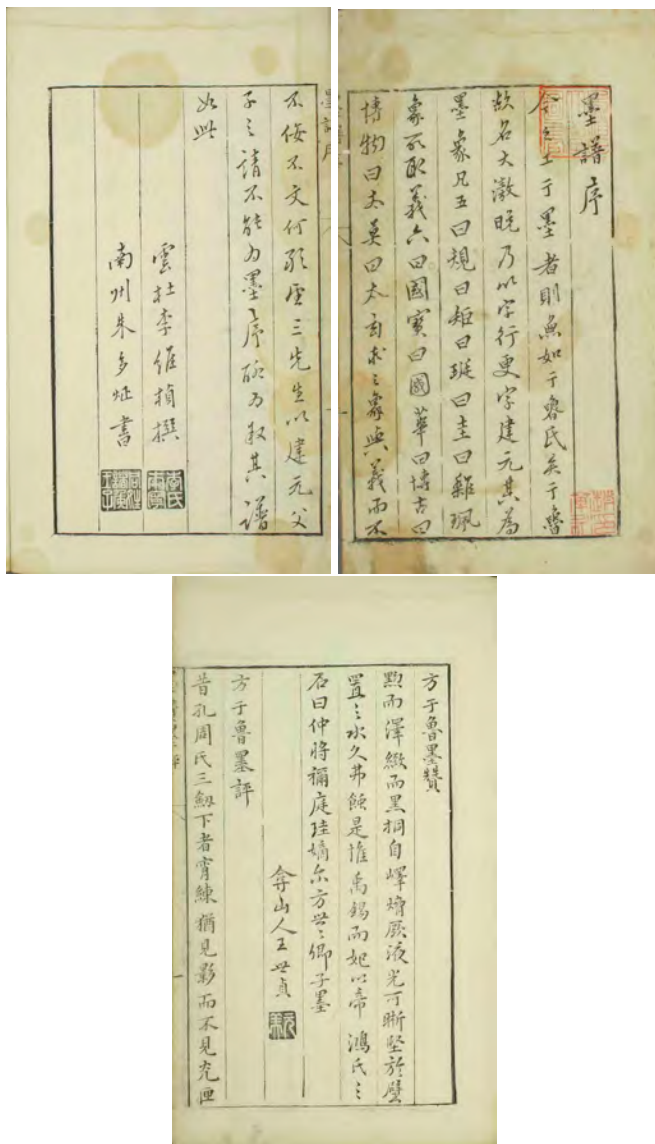 墨譜序
今之工于墨者則無如于魯氏矣于魯
故名大激既乃以字行更字建元其為
墨象凡五曰規曰矩曰珽曰圭曰雜珮
象所取義六曰國寶曰國華曰博古曰
博物曰太莫曰太玄求之象與義而不
不佞不文何敢望三先生以建元父
子之請不能為墨序聊為敘其譜
如此
雲杜李維楨撰
南州朱多炡書
方于魯墨贊
黝而澤緻而黑桐自嶧膏厥液光可晰堅於璧
置之水久弗蝕是惟禹錫而妃以帝鴻氏之
石曰仲將禰庭珪嫡尔方世世卿子墨
弇山人王世貞
元美
方于魯墨評
昔孔周氏三劒下者宵練猶見影而不見光匣